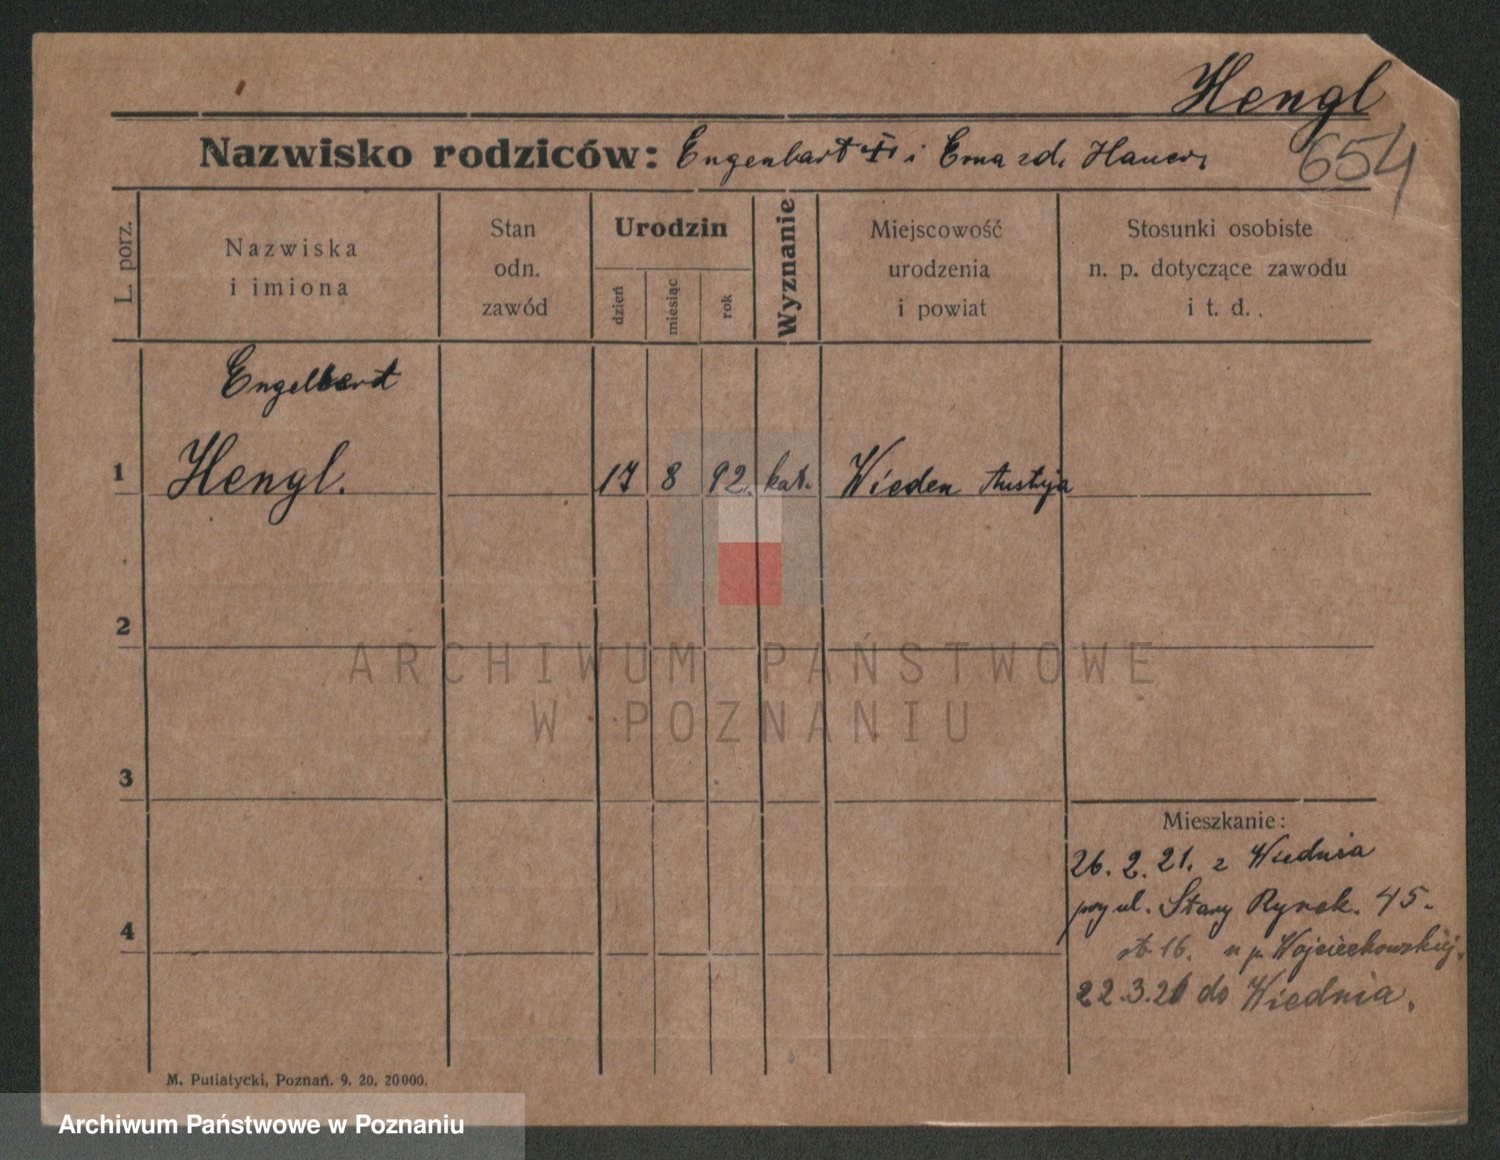 Hengl
654
Nazwisko rodziców: Engenbart i Ema zd. Hauer
L. porz.
Nazwiska
i imiona
Stan
odn.
zawód
Urodzin
dzień
miesiąc
rok
Wyznanie
Miejscowość
urodzenia
i powiat
Stosunki osobiste
n. p. dotyczące zawodu
i t. d.
Engelbert
1 Hengl. 17 8 92. kat. Wieden Austyja
2
3
4
Mieszkanie:
26.2.21. z Wiednia
przy ul. Stary Rynek. 45.
16. u p. Wojciechowskiej.
22.3.21 do Wiednia.
M. Putiatycki, Poznań. 9. 20. 20000.
ARCHIWUM PAŃSTWOWE
W POZNANIU
Archiwum Państwowe w Poznaniu